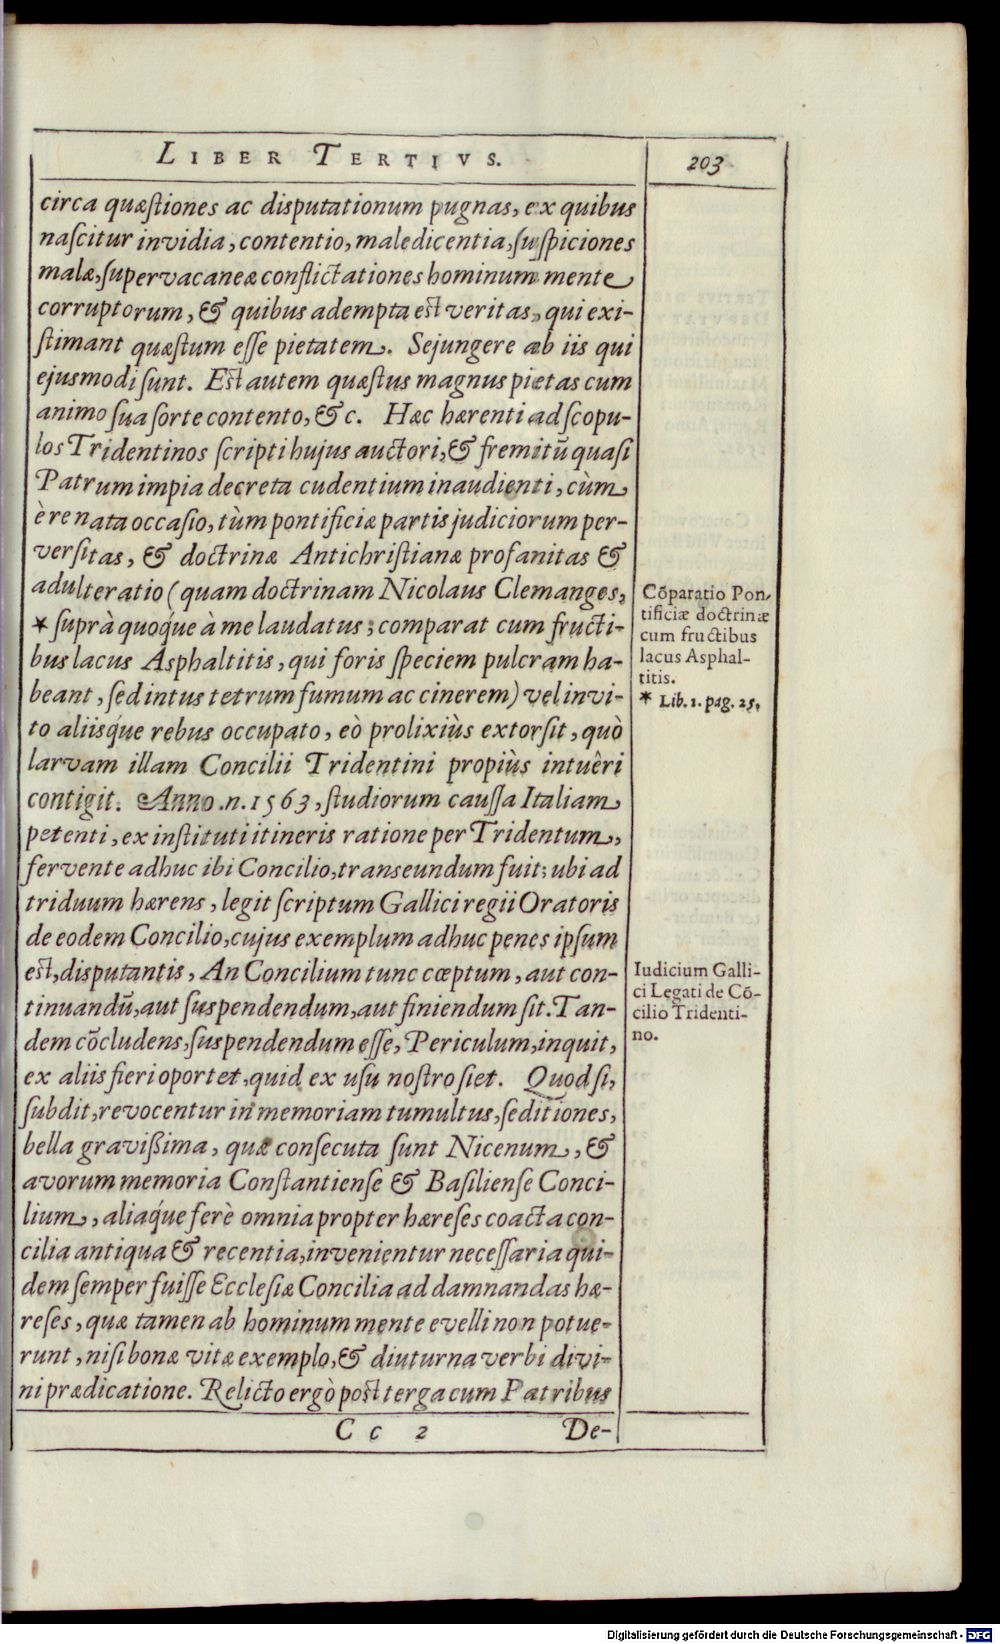 LIBER TERTIVS.
203
circa quæſtiones ac disputationum pugnas, ex quibus
naſcitur invidia, contentio, maledicentia, ſuſpiciones
malæ, ſupervacaneæ conflictationes hominum mente
corruptorum, & quibus adempta est veritas, qui exi-
ſtimant quæſtum eſſe pietatem. Sejungere ab iis qui
ejusmodi ſunt. Est autem quæſtus magnus pietas cum
animo ſua ſorte contento, &c. Hæc hærenti ad ſcopu-
los Tridentinos ſcripti hujus auctori, & fremitū quaſi
Patrum impia decreta cudentium inaudienti, cùm
è re nata occaſio, tùm pontificiæ partis judiciorum per-
verſitas, & doctrinæ Antichriſtianæ profanitas &
adulteratio (quam doctrinam Nicolaus Clemanges,
* ſuprà quoq́ue à me laudatus, comparat cum fructi-
bus lacus Asphaltitis, qui foris ſpeciem pulcram ha-
beant, ſed intus tetrum fumum ac cinerem) vel invi-
to aliisq́ue rebus occupato, eò prolixiùs extorſit, quò
larvam illam Concilii Tridentini propiùs intuêri
contigit. Anno .n. 1563, ſtudiorum cauſſa Italiam
petenti, ex inſtituti itineris ratione per Tridentum,
fervente adhuc ibi Concilio, transeundum fuit; ubi ad
triduum hærens, legit ſcriptum Gallici regii Oratoris
de eodem Concilio, cujus exemplum adhuc penes ipſum
est, disputantis, An Concilium tunc cœptum, aut con-
tinuandū, aut ſuspendendum, aut finiendum ſit. Tan-
dem cōcludens, ſuspendendum eſſe, Periculum, inquit,
ex aliis fieri oportet, quid ex uſu noſtro ſiet. Quod ſi,
ſubdit, revocentur in memoriam tumultus, ſeditiones,
bella graviſsima, quæ conſecuta ſunt Nicenum, &
avorum memoria Conſtantienſe & Baſilienſe Conci-
lium, aliaq́ue ferè omnia propter hæreſes coacta con-
cilia antiqua & recentia, invenientur neceſſaria qui-
dem ſemper fuiſſe Eccleſiæ Concilia ad damnandas hæ-
reſes, quæ tamen ab hominum mente evelli non potue-
runt, niſi bonæ vitæ exemplo, & diuturna verbi divi-
ni prædicatione. Relicto ergò post terga cum Patribus
Cc 2
De-
Cōparatio Pon-
tificiæ doctrinæ
cum fructibus
lacus Asphal-
titis.
* Lib. 1. pag. 25.
Iudicium Galli-
ci Legati de Cō-
cilio Tridenti-
no.
Digitalisierung gefördert durch die Deutsche Forschungsgemeinschaft - DFG